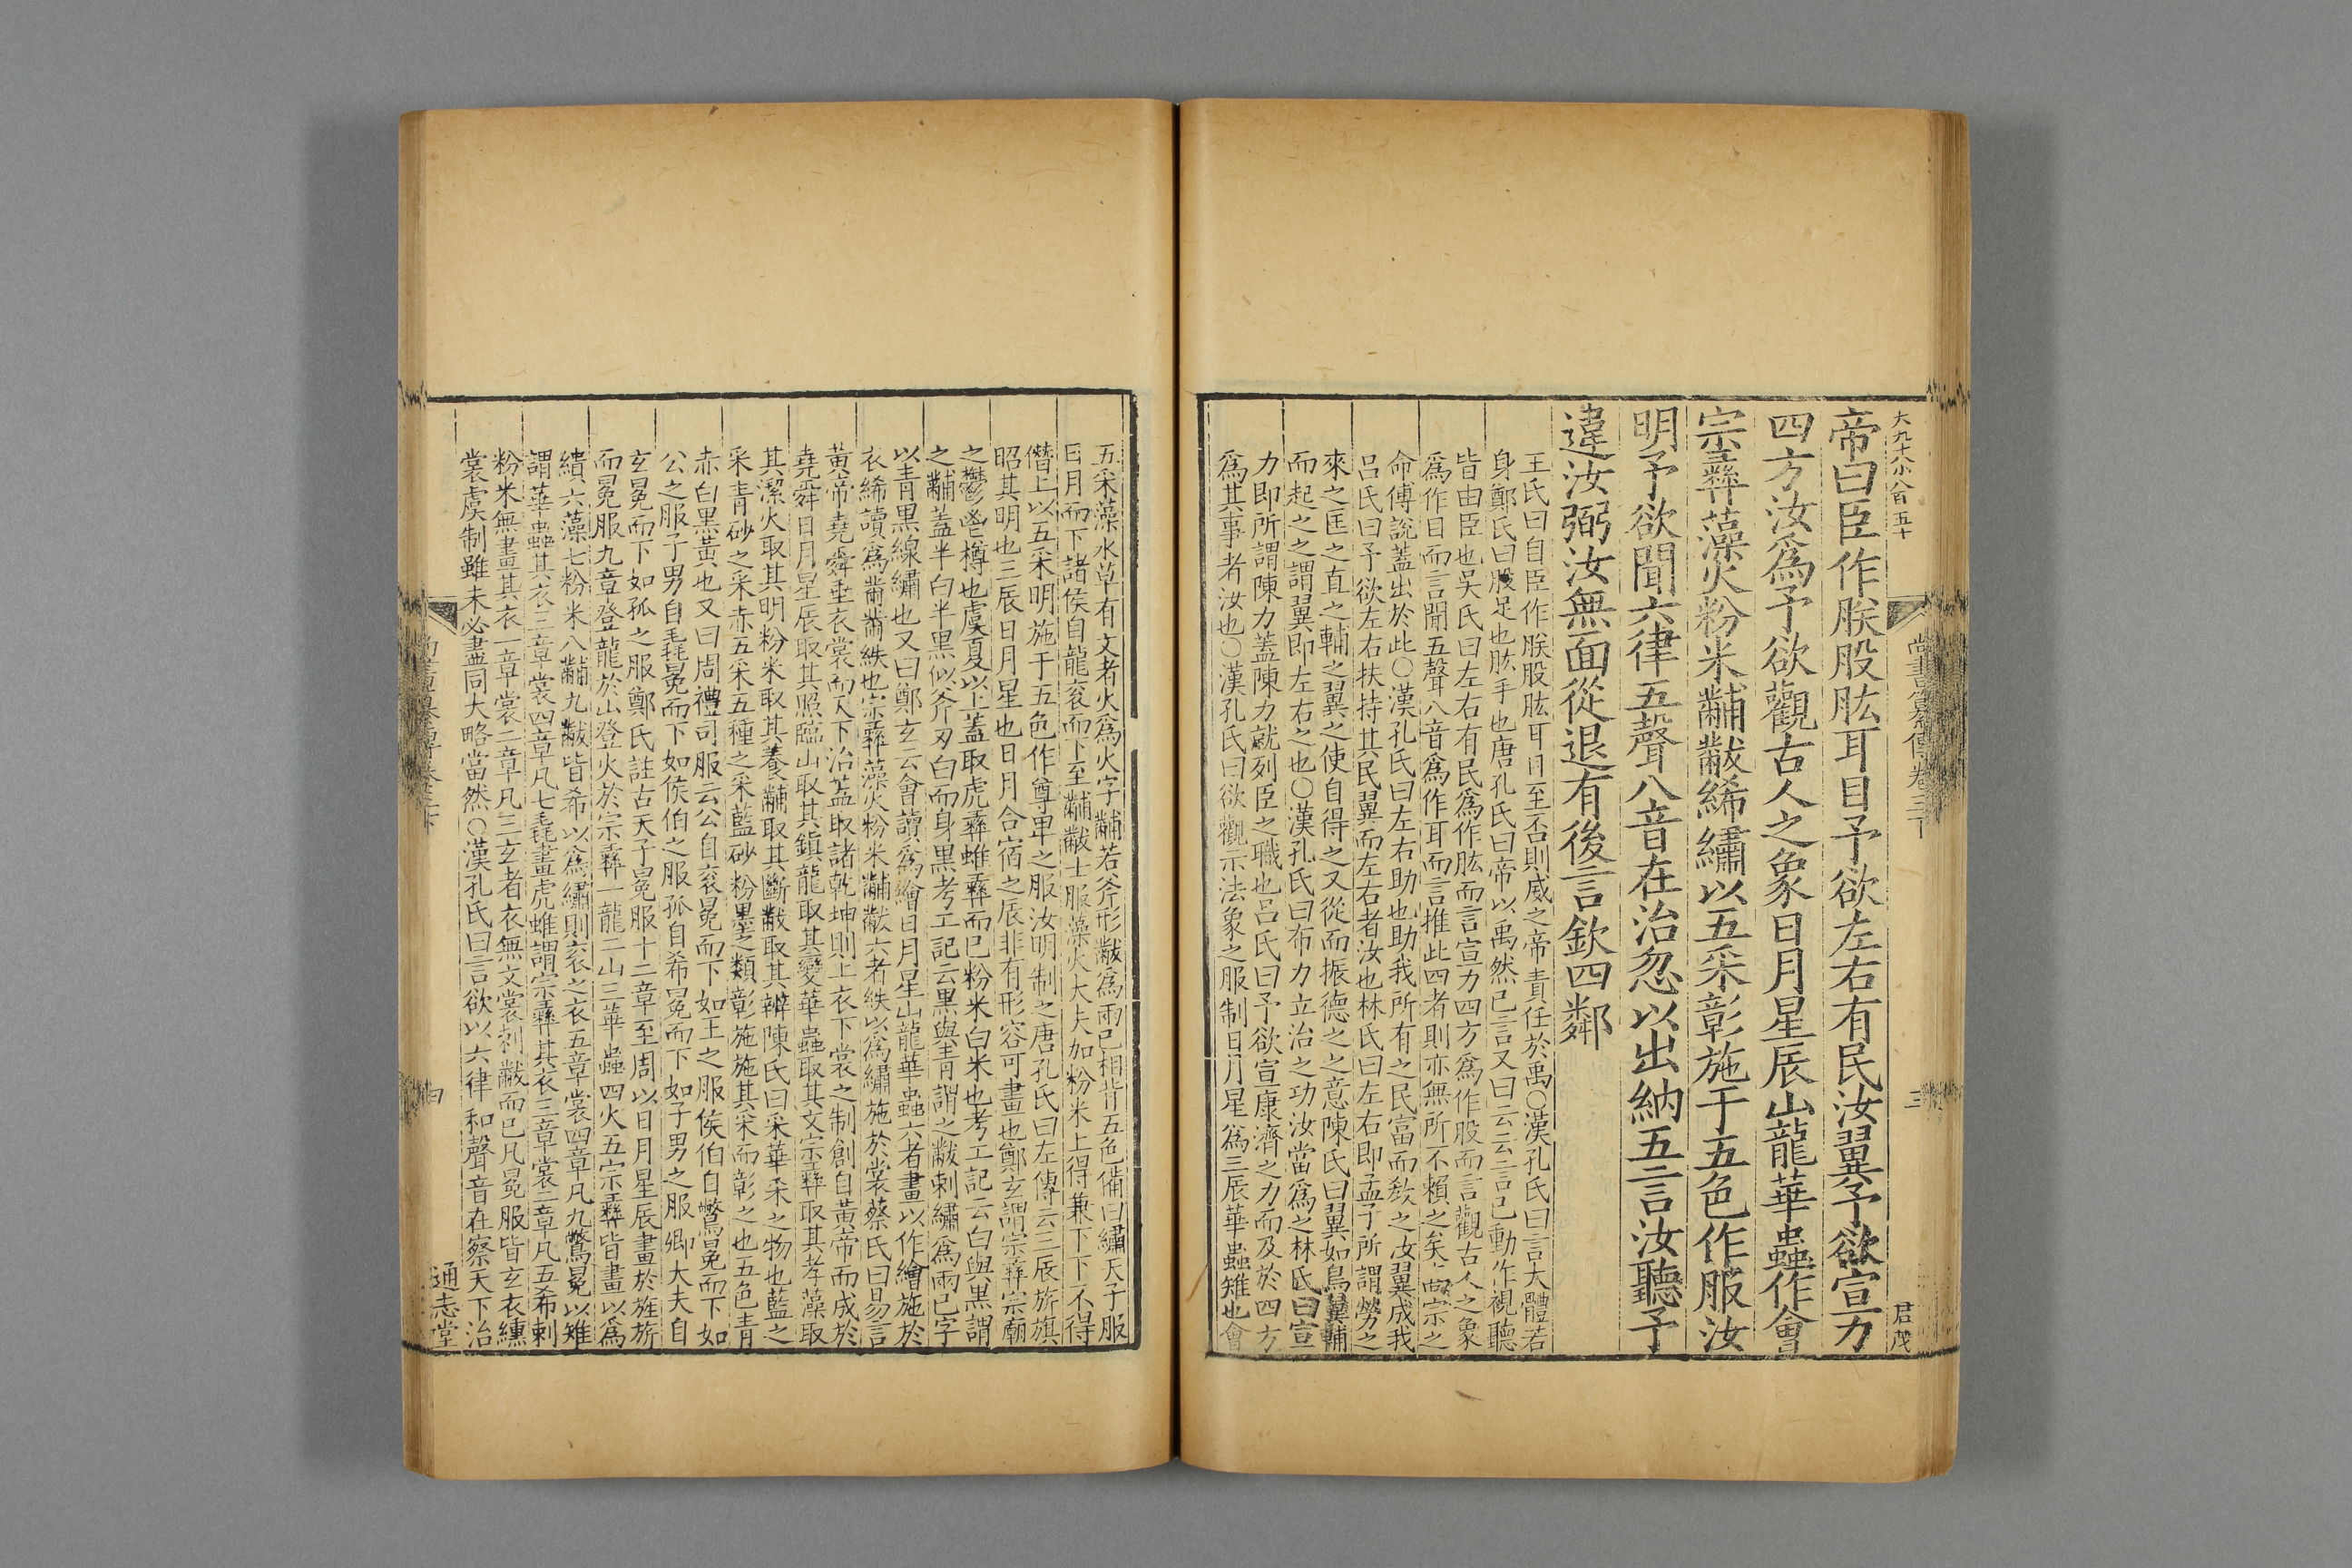 大九十八小八百五十
尚書纂傳卷三下
三
君茂
帝曰臣作朕股肱耳目予欲左右有民汝翼予欲宣力
四方汝爲予欲觀古人之象日月星辰山龍華蟲作會
宗彝藻火粉米黼黻絺繡以五采彰施于五色作服汝
明予欲聞六律五聲八音在治忽以出納五言汝聽予
違汝弼汝無面從退有後言欽四鄰
王氏曰自臣作朕股肱耳目至否則威之帝責任於禹○漢孔氏曰言大體若
身鄭氏曰股足也肱手也唐孔氏曰帝以禹然已言又曰云云言己動作視聽
皆由臣也吳氏曰左右有民爲作肱而言宣力四方爲作股而言觀古人之象
爲作目而言聞五聲八音爲作耳而言推此四者則亦無所不賴之矣高宗之
命傅說蓋出於此○漢孔氏曰左右助也助我所有之民富而教之汝翼成我
呂氏曰予欲左右扶持其民翼而左右者汝也林氏曰左右即孟子所謂勞之
來之匡之直之輔之翼之使自得之又從而振德之之意陳氏曰翼如鳥翼輔
而起之之謂翼即左右之也○漢孔氏曰布力立治之功汝當爲之林氏曰宣
力即所謂陳力蓋陳力就列臣之職也呂氏曰予欲宣康濟之力而及於四方
爲其事者汝也○漢孔氏曰欲觀示法象之服制日月星爲三辰華蟲雉也會
五采藻水草有文者火爲火字黼若斧形黻爲兩己相背五色備曰繡天子服
日月而下諸侯自龍衮而下至黼黻士服藻火大夫加粉米上得兼下下不得
僭上以五采明施于五色作尊卑之服汝明制之唐孔氏曰左傳云三辰旂旗
昭其明也三辰日月星也日月合宿之辰非有形容可畫也鄭玄謂宗彝宗廟
之鬱鬯樽也虞夏以上蓋取虎彝蜼彝而已粉米白米也考工記云白與黑謂
之黼蓋半白半黑似斧刃白而身黑考工記云黑與青謂之黻刺繡爲兩己字
以青黑線繡也又曰鄭玄云會讀爲繪日月星山龍華蟲六者畫以作繪施於
衣絺讀爲黹黹紩也宗彝藻火粉米黼黻六者紩以爲繡施於裳蔡氏曰易言
黃帝堯舜垂衣裳而天下治蓋取諸乾坤則上衣下裳之制創自黃帝而成於
堯舜日月星辰取其照臨山取其鎮龍取其變華蟲取其文宗彝取其孝藻取
其潔火取其明粉米取其養黼取其斷黻取其辨陳氏曰采華采之物也藍之
采青砂之采赤五采五種之采藍砂粉墨之類彰施施其采而彰之也五色青
赤白黑黃也又曰周禮司服云公自衮冕而下如王之服侯伯自鷩冕而下如
公之服子男自毳冕而下如侯伯之服孤自希冕而下如子男之服卿大夫自
玄冕而下如孤之服鄭氏註古天子冕服十二章至周以日月星辰畫於旌旂
而冕服九章登龍於山登火於宗彝一龍二山三華蟲四火五宗彝皆畫以爲
繢六藻七粉米八黼九黻皆希以爲繡則衮之衣五章裳四章凡九鷩冕以雉
謂華蟲其衣三章裳四章凡七毳畫虎蜼謂宗彝其衣三章裳二章凡五希刺
粉米無畫其衣一章裳二章凡三玄者衣無文裳刺黻而已凡冕服皆玄衣纁
裳虞制雖未必盡同大略當然○漢孔氏曰言欲以六律和聲音在察天下治
四
通志堂